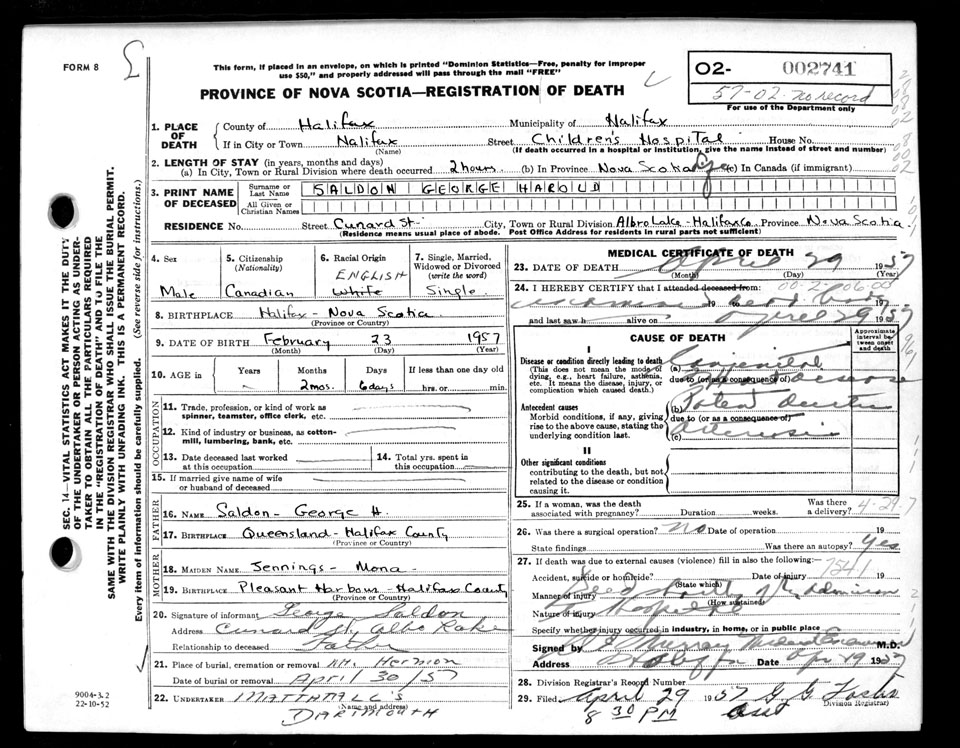 FORM 8
This form, if placed in an envelope, on which is printed "Dominion Statistics—Free, penalty for improper
use $50," and properly addressed will pass through the mail "FREE"
02- 002741
57-02- no record
For use of the Department only
PROVINCE OF NOVA SCOTIA—REGISTRATION OF DEATH
1. PLACE OF DEATH
County of Halifax Municipality of Halifax
If in City or Town Halifax Street Children's Hospital House No.
(Name) (If death occurred in a hospital or institution, give the name instead of street and number)
2. LENGTH OF STAY (in years, months and days)
(a) In City, Town or Rural Division where death occurred 2 hours (b) In Province Nova Scotia (c) In Canada (if immigrant)
3. PRINT NAME OF DECEASED
Surname or Last Name SALDON GEORGE HAROLD
All Given or Christian Names
RESIDENCE No. Street Cunard St. City, Town or Rural Division Albro Lake - Halifax Co. Province Nova Scotia
(Residence means usual place of abode. Post Office Address for residents in rural parts not sufficient)
4. Sex Male
5. Citizenship (Nationality) Canadian
6. Racial Origin ENGLISH White
7. Single, Married, Widowed or Divorced (write the word) Single
8. BIRTHPLACE Halifax - Nova Scotia
(Province or Country)
9. DATE OF BIRTH February 23 1957
(Month) (Day) (Year)
10. AGE in Years Months Days If less than one day old
2 mos. 6 days hrs. or min.
OCCUPATION
11. Trade, profession, or kind of work as spinner, teamster, office clerk, etc.
12. Kind of industry or business, as cotton-mill, lumbering, bank, etc.
13. Date deceased last worked at this occupation
14. Total yrs. spent in this occupation
15. If married give name of wife or husband of deceased
FATHER
16. NAME Saldon - George H.
17. BIRTHPLACE Queensland - Halifax County
(Province or Country)
MOTHER
18. MAIDEN NAME Jennings - Mona
19. BIRTHPLACE Pleasant Harbour - Halifax County
(Province or Country)
20. Signature of informant George Saldon
Address Cunard St, Albro Lake
Relationship to deceased Father
21. Place of burial, cremation or removal Mt. Hermon
Date of burial or removal April 30/57
22. UNDERTAKER MATTATALL'S
(Name and address)
DARTMOUTH
MEDICAL CERTIFICATE OF DEATH
23. DATE OF DEATH April 29 1957
(Month) (Day) (Year)
24. I HEREBY CERTIFY that I attended deceased from:
19 to 19
and last saw h alive on April 29 1957
CAUSE OF DEATH
Approximate interval between onset and death
I
Disease or condition directly leading to death
(This does not mean the mode of dying, e.g., heart failure, asthenia, etc. It means the disease, injury, or complication which caused death.)
(a) Congenital
due to (or as a consequence of) Heart disease
Antecedent causes
Morbid conditions, if any, giving rise to the above cause, stating the underlying condition last.
(b) Patent ductus
due to (or as a consequence of)
(c) arteriosus
II
Other significant conditions
contributing to the death, but not related to the disease or condition causing it.
25. If a woman, was the death associated with pregnancy? Duration weeks. Was there a delivery?
26. Was there a surgical operation? no Date of operation 19
State findings Was there an autopsy? Yes
27. If death was due to external causes (violence) fill in also the following:
7541
Accident, suicide or homicide? Date of injury 19
(State which)
Manner of injury Died shortly after admission
(How sustained)
Nature of injury to Hospital
Specify whether injury occurred in industry, in home, or in public place
Signed by Murray Medical Examiner M.D.
Address Halifax Date Apr 29 1957
28. Division Registrar's Record Number
29. Filed April 29 1957 G. G.
Division Registrar)
8 30 PM asst
SEC. 14—VITAL STATISTICS ACT MAKES IT THE DUTY
OF THE UNDERTAKER OR PERSON ACTING AS UNDER-
TAKER TO OBTAIN ALL THE PARTICULARS REQUIRED
IN THE "REGISTRATION OF DEATH" AND TO FILE THE
SAME WITH THE DIVISION REGISTRAR WHO SHALL ISSUE THE BURIAL PERMIT.
WRITE PLAINLY WITH UNFADING INK. THIS IS A PERMANENT RECORD.
Every item of information should be carefully supplied. (See reverse side for instructions.)
9004-3.2
22-10-52